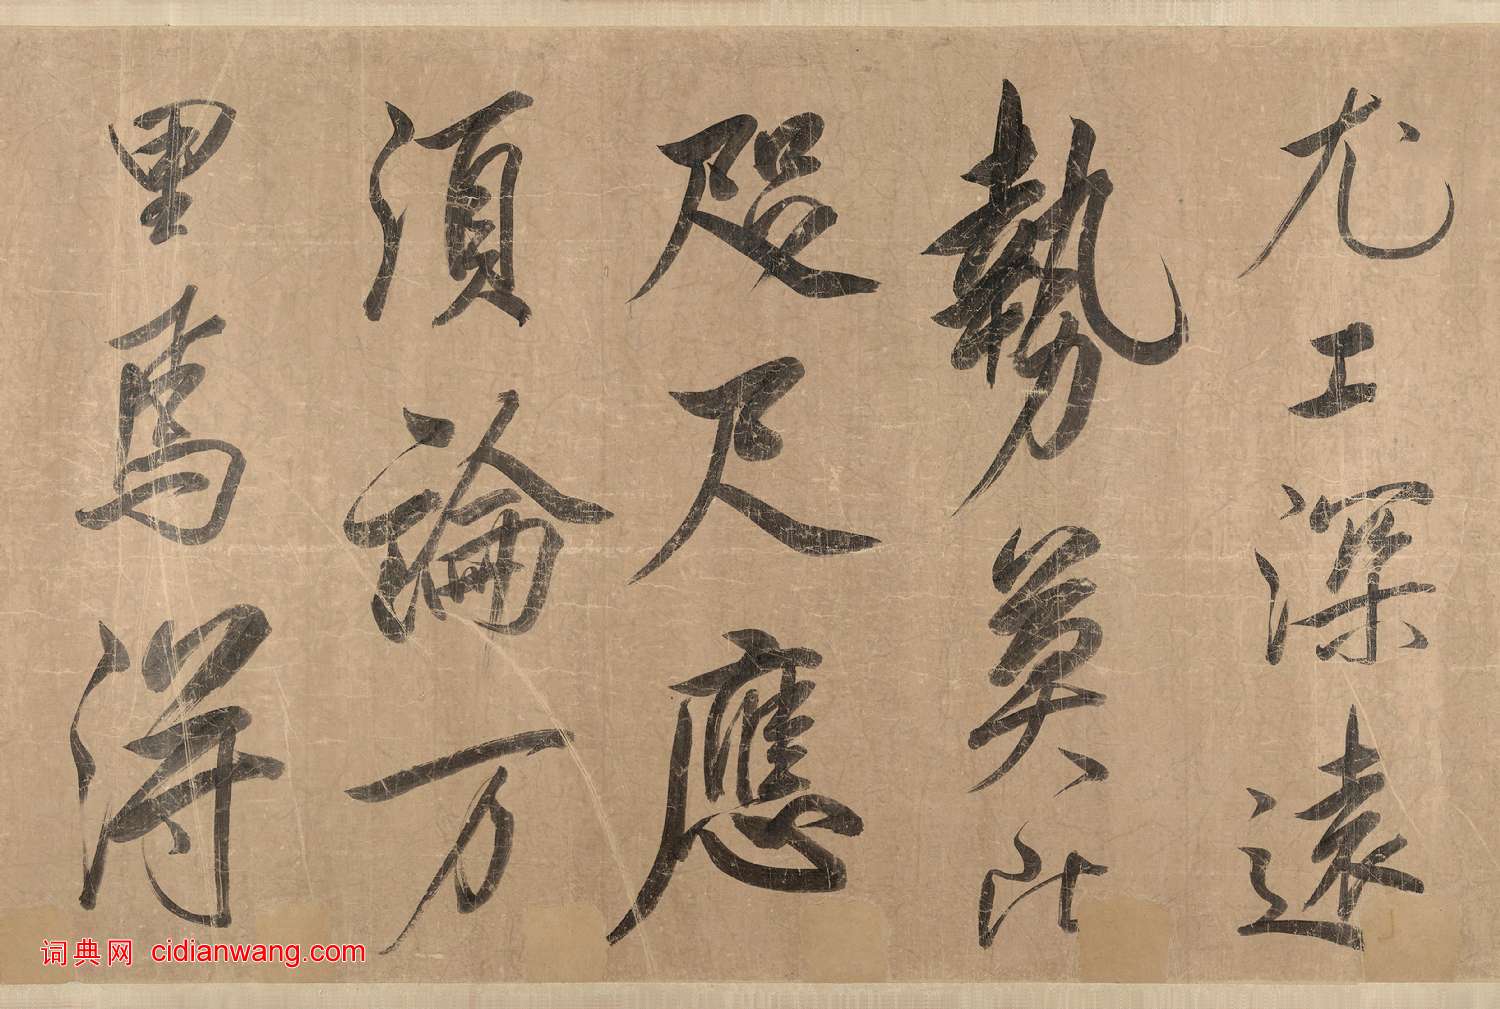 尤工深遠
勢莫比
咫尺應
須論万
里焉得
词典网 cidianwang.com